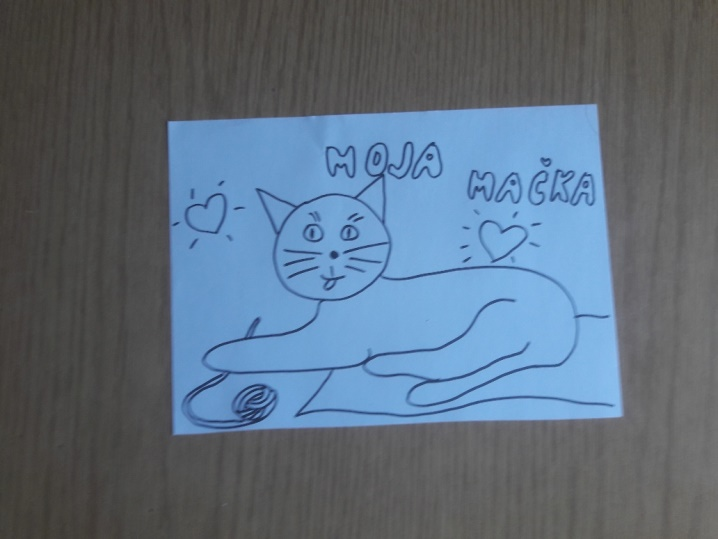 MOJA
MAČKA